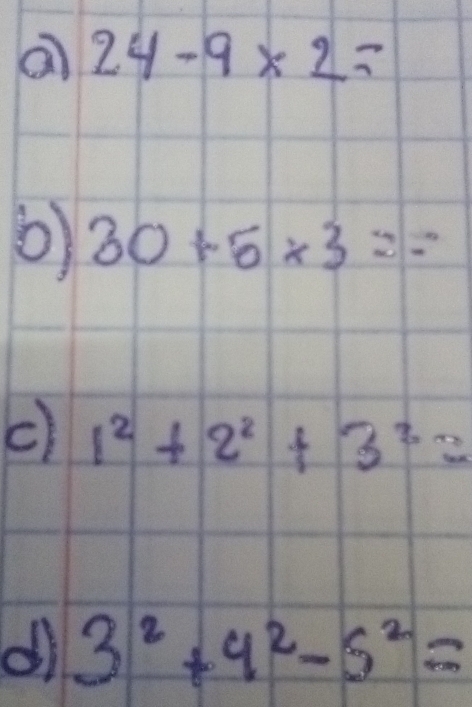 a) 24 - 9 × 2 =
b) 30 + 5 × 3 = =
c) 1² + 2² + 3² =
d) 3² + 4² - 5² =